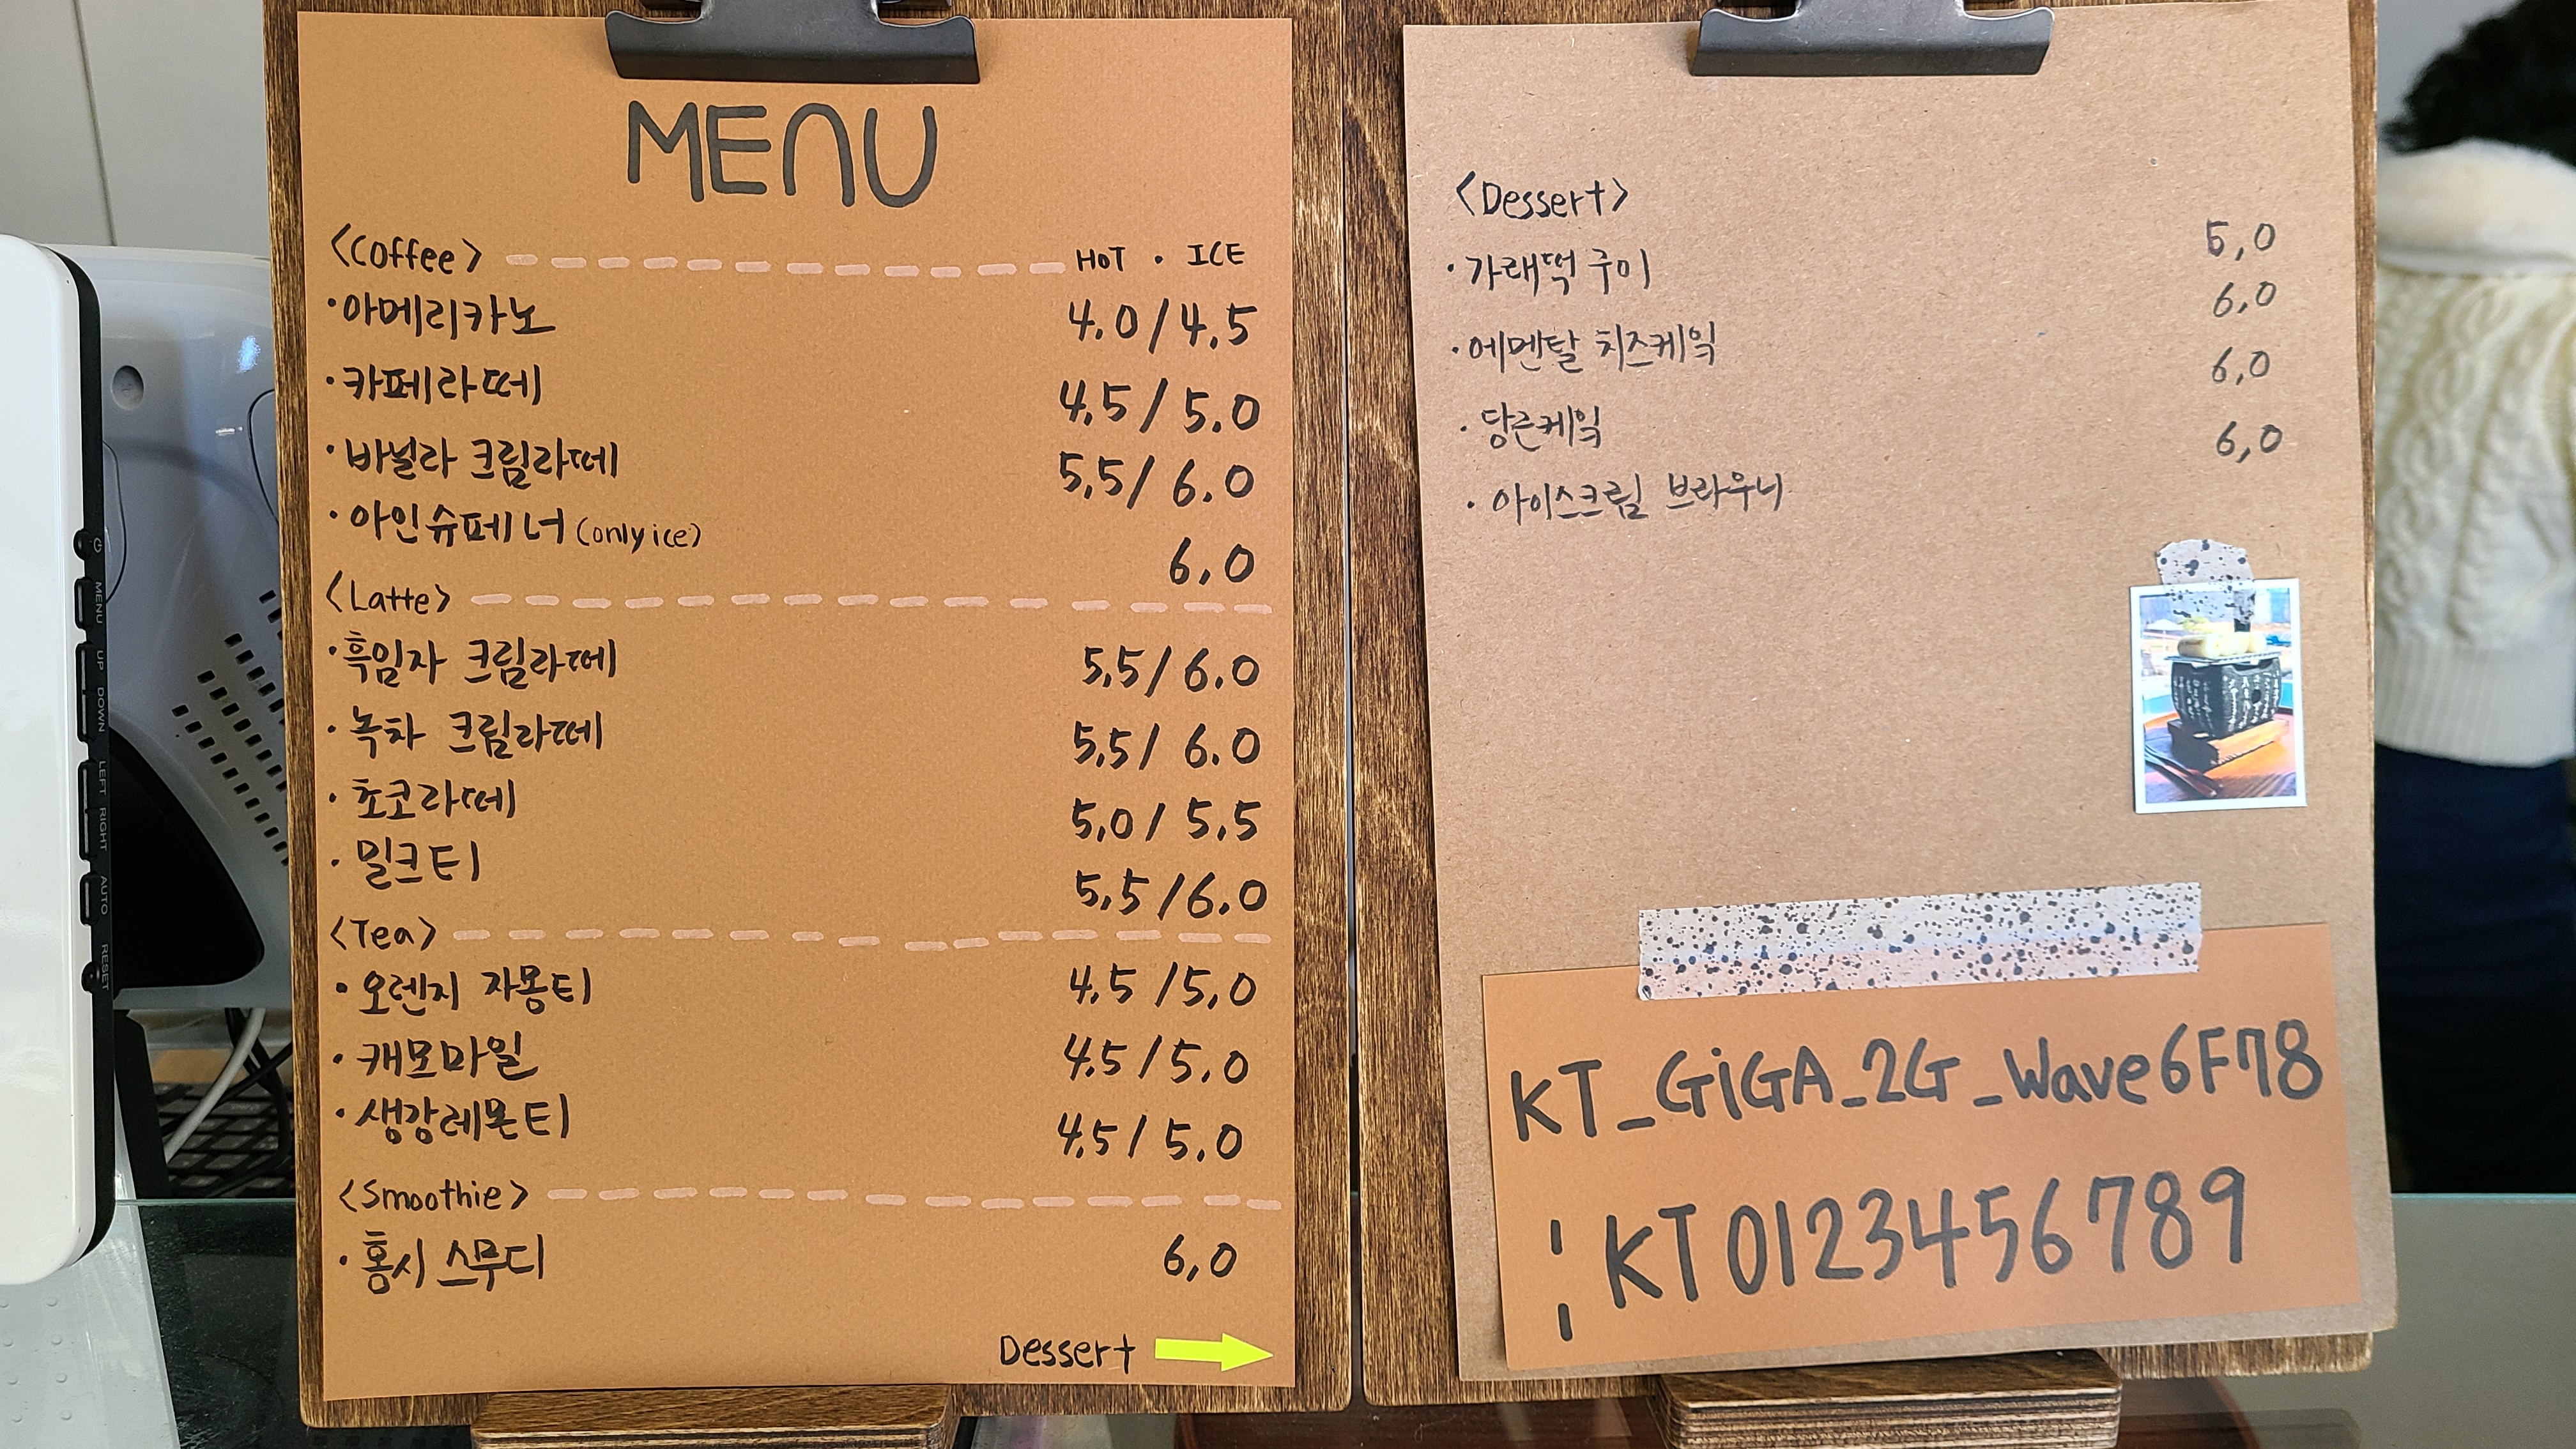 MENU
<Coffee> HOT · ICE
·아메리카노 4.0/4.5
·카페라떼 4.5/5.0
·바닐라 크림라떼 5.5/6.0
·아인슈페너(only ice) 6.0
<Latte>
·흑임자 크림라떼 5.5/6.0
·녹차 크림라떼 5.5/6.0
·초코라떼 5.0/5.5
·밀크티 5.5/6.0
<Tea>
·오렌지 자몽티 4.5/5.0
·캐모마일 4.5/5.0
·생강레몬티 4.5/5.0
<Smoothie>
·홍시 스무디 6,0
Dessert
<Dessert>
·가래떡 구이 5,0
·에멘탈 치즈케잌 6,0
·당근케잌 6,0
·아이스크림 브라우니 6,0
KT_GiGA_2G_Wave6F78
¦ KT0123456789
MENU
UP
DOWN
LEFT
RIGHT
AUTO
RESET